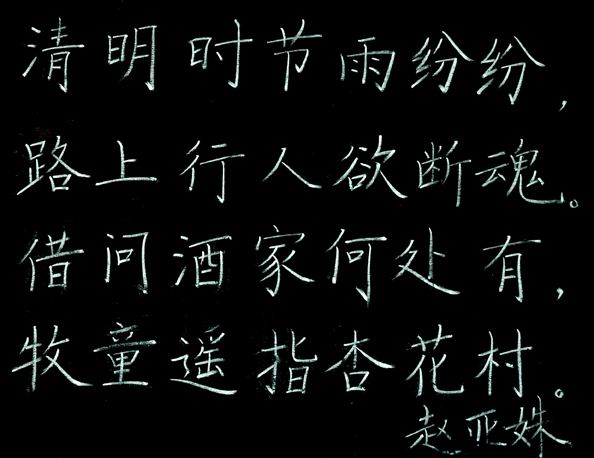 清明时节雨纷纷，
路上行人欲断魂。
借问酒家何处有，
牧童遥指杏花村。
赵亚姝